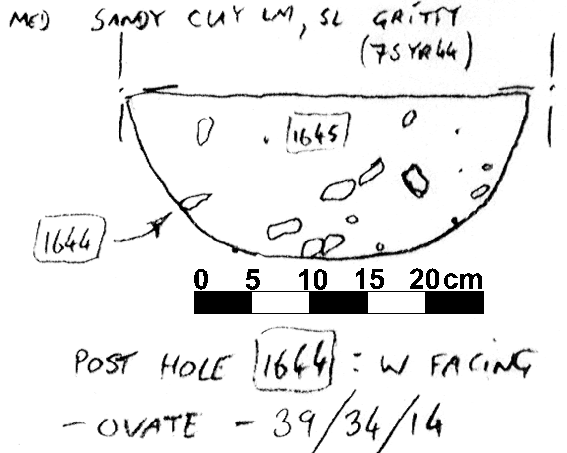 MED SANDY CLAY LM, SL GRITTY
(7.5YR44)
1645
1644
0 5 10 15 20cm
POST HOLE 1644 : W FACING
- OVATE - 39/34/14